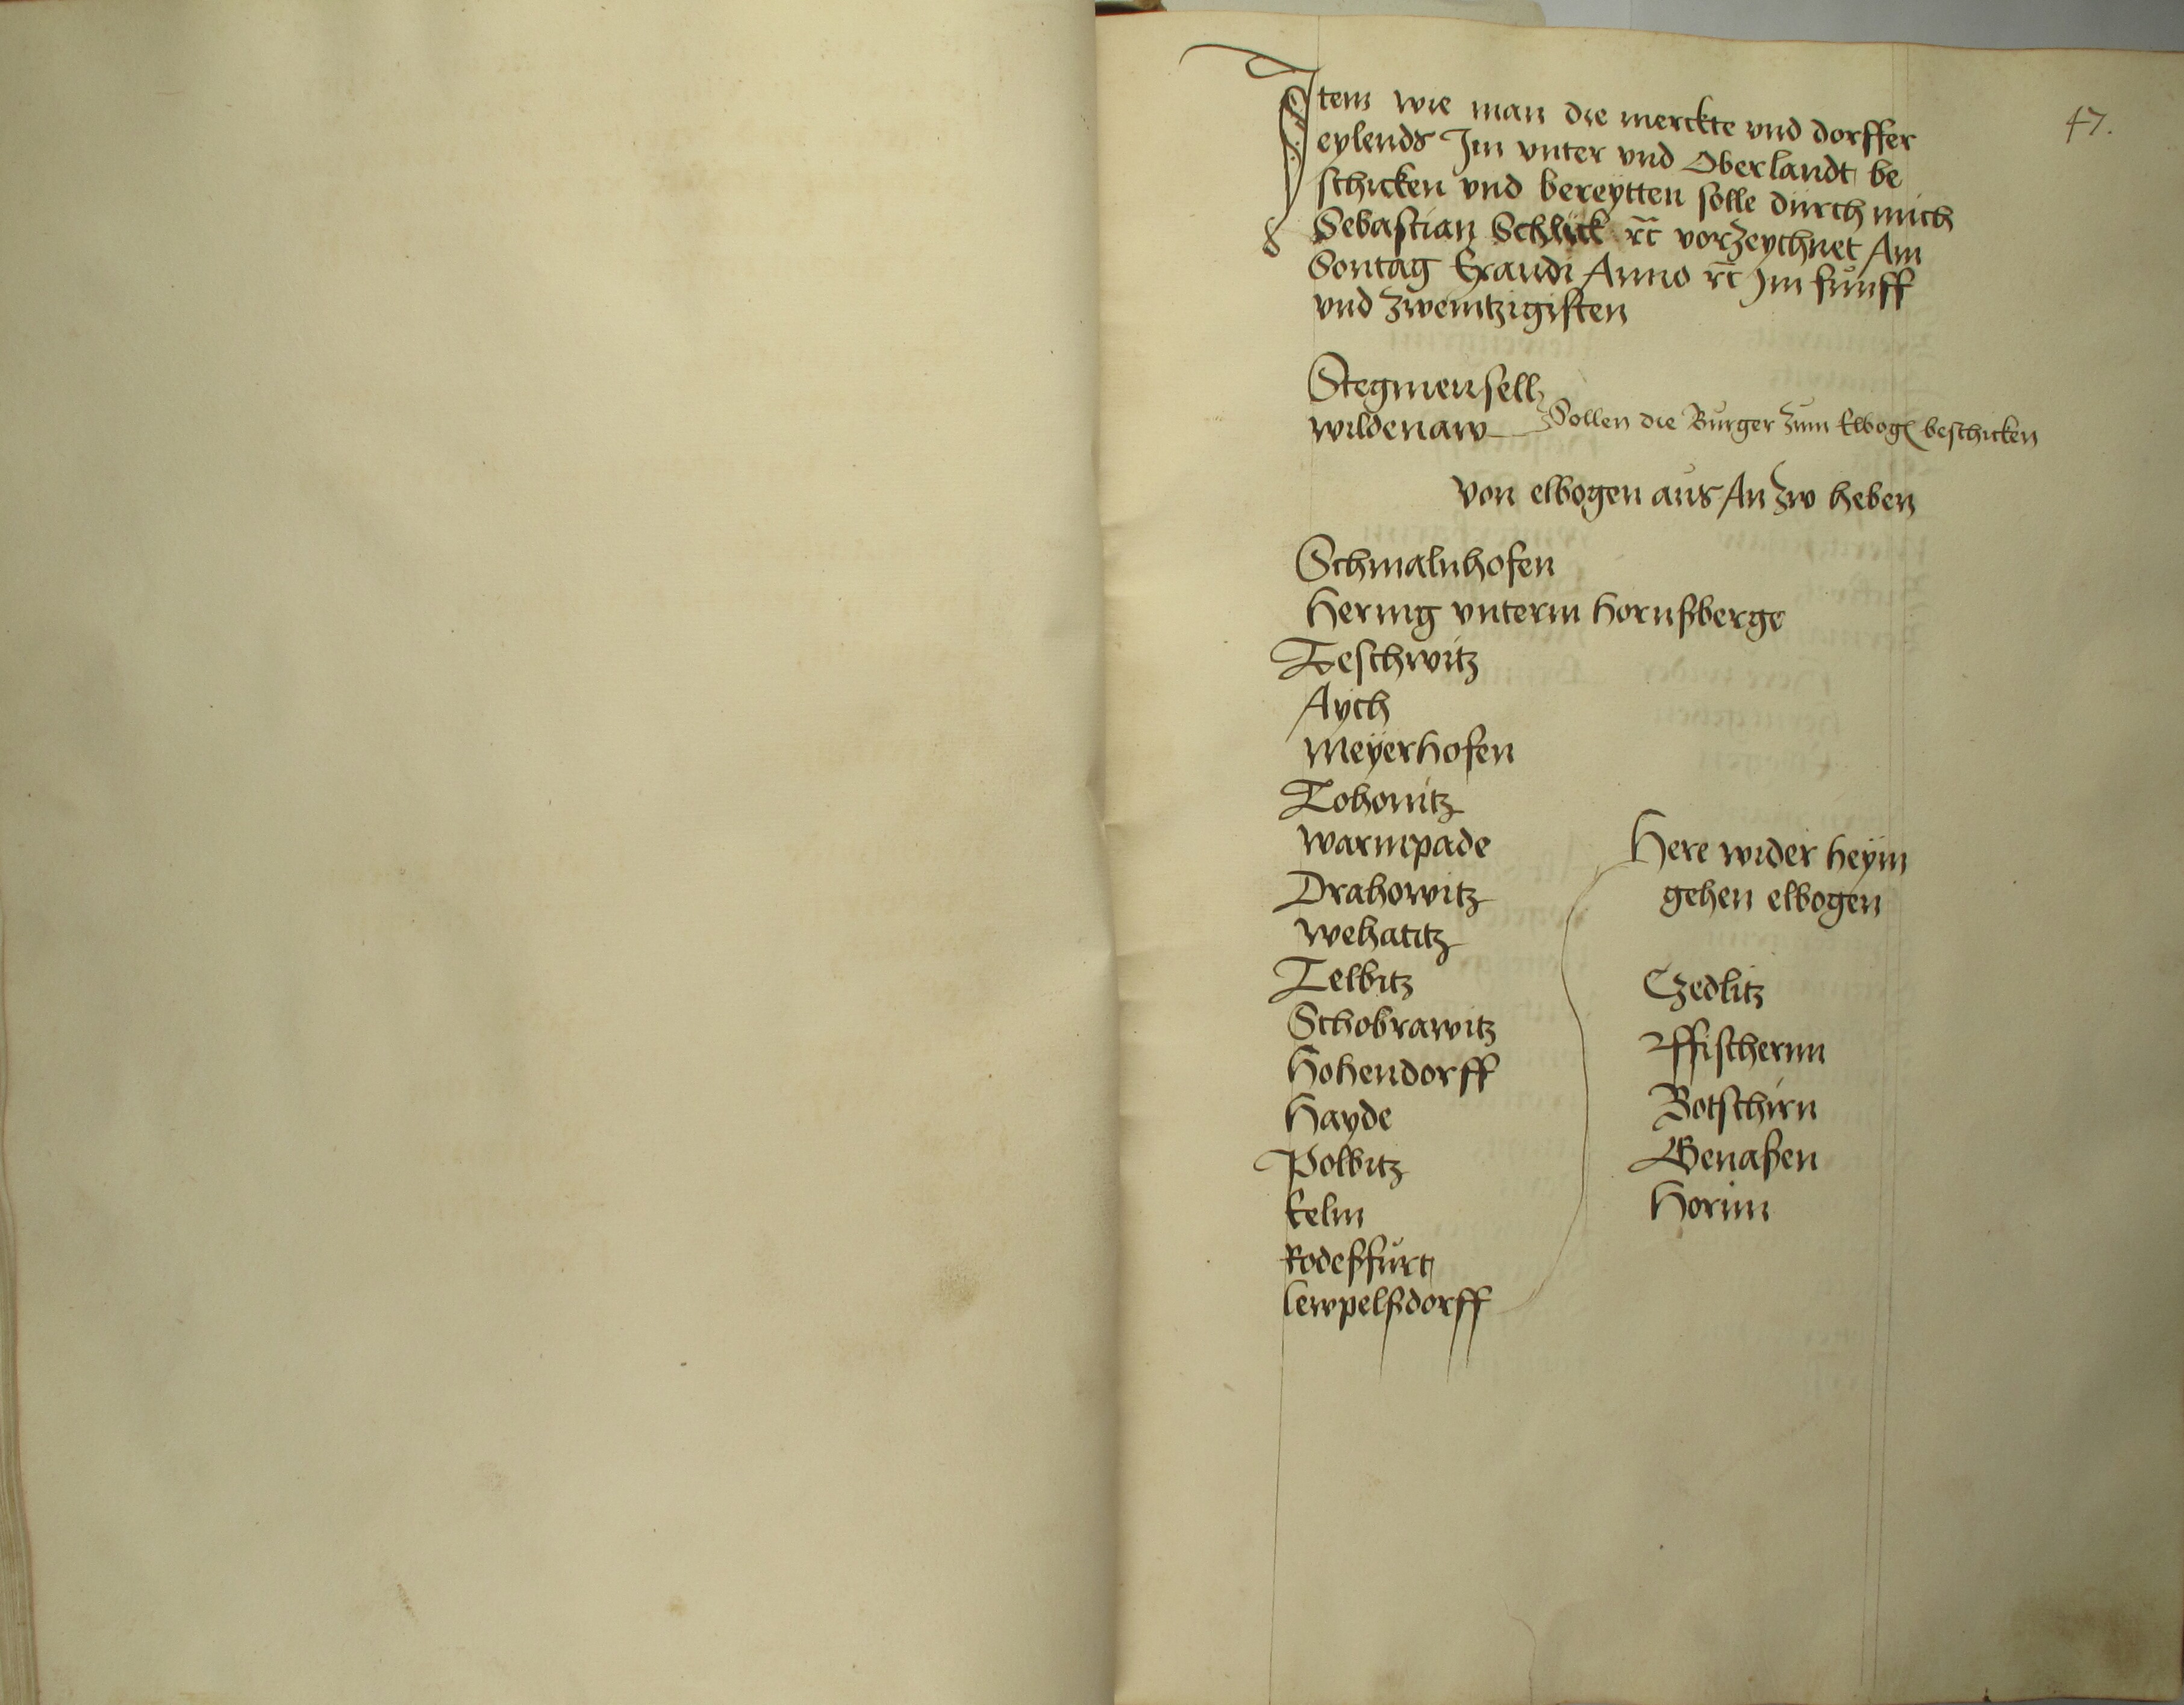 47.
Item wie man die merckte vnd dorffer
eylends Im vnter vnd Oberlandt be
schicken vnd bereytten solle durch mich
Sebastian Schlick rc vorzeychnet Am
Sontag Exaudi Anno rc Im funff
vnd zweintzigisten
Stegmensell
wildenaw Sollen die Burger zum Elbog beschicken
von elbogen aus An zw heben
Schmalnhofen
Hering vnterm hornßberge
Teschwitz
Aych
Meyerhofen
Tohonitz
warmpade
Drahowitz
wehatitz
Telbitz
Schobrawitz
Hohendorff
Hayde
Polbitz
kelm
Rodeßfurt
lewpelßdorff
Here wider heym
gehen elbogen
Czedlitz
Ffischernn
Botschirn
Genaßen
Hornn